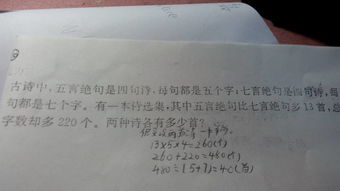 古诗中，五言绝句是四句诗，每句都是五个字；七言绝句是四句诗，每
句都是七个字。有一本诗选集，其中五言绝句比七言绝句多13首，总
字数却多220个。两种诗各有多少首？
13×5×4=260(个)
260+220=480(个)